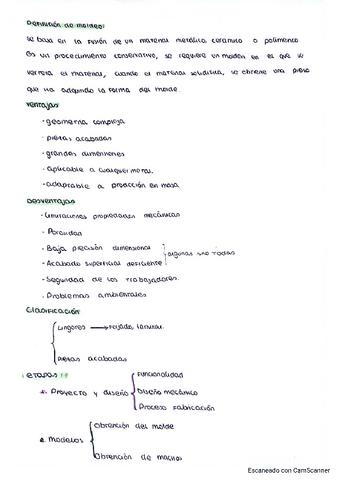 Definición de moldeo:
Se basa en la fusión de un material metálico ceramico o polimerico
es un procedimiento conservativo, se requiere un molden en el que se
verterá el material, cuando el material solidifica, se obtiene una pieza
que ha adquirido la forma del molde.
Ventajas
· geometria compleja
· piezas acabadas
· grandes dimensiones
· aplicable a cualquier metal.
· adaptable a producción en masa
Desventajas
· Limitaciones propiedades mecánicas
· Porosidad
· Baja precisión dimensional
· Acabado superficial deficiente } algunas no todas
· Seguridad de los trabajadores.
· Problemas ambientales
Clasificación
Lingotes → forjado, laminar.
Piezas acabadas
· etapas
Funcionalidad
1. Proyecto y diseño Diseño mecánico
Proceso fabricación
2. Modelos Obtención del molde
Obtención de machos
Escaneado con CamScanner